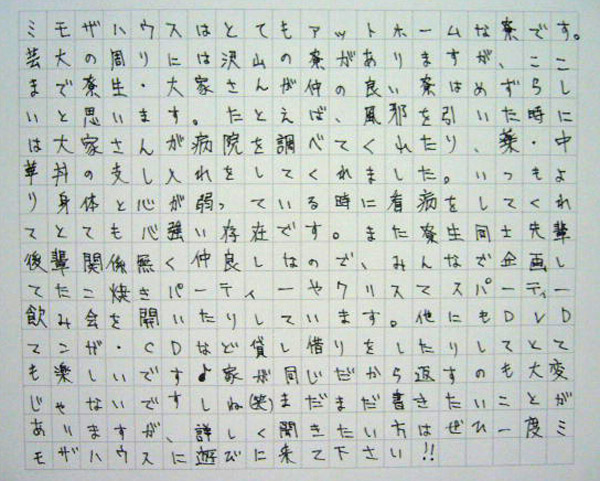 ミモザハウスはとてもアットホームな寮です。
芸大の周りには沢山の寮がありますが、ここ
まで寮生・大家さんが仲の良い寮はめずらし
いと思います。たとえば、風邪を引いた時に
は大家さんが病院を調べてくれたり、薬・中
華丼の支し入れをしてくれました。いつもよ
り身体と心が弱っている時に看病をしてくれ
てとても心強い存在です。また寮生同士先輩
後輩関係無く仲良しなので、みんなで企画し
てたこ焼きパーティーやクリスマスパーティー
飲み会を開いたりしています。他にもDVD
マンガ・CDなど貸し借りをしたりしてとて
も楽しいです♪家が同じだから返すのも大変
じゃないですしね(笑)まだまだ書きたいことが
ありますが、詳しく聞きたい方はぜひ一度ミ
モザハウスに遊びに来て下さい!!